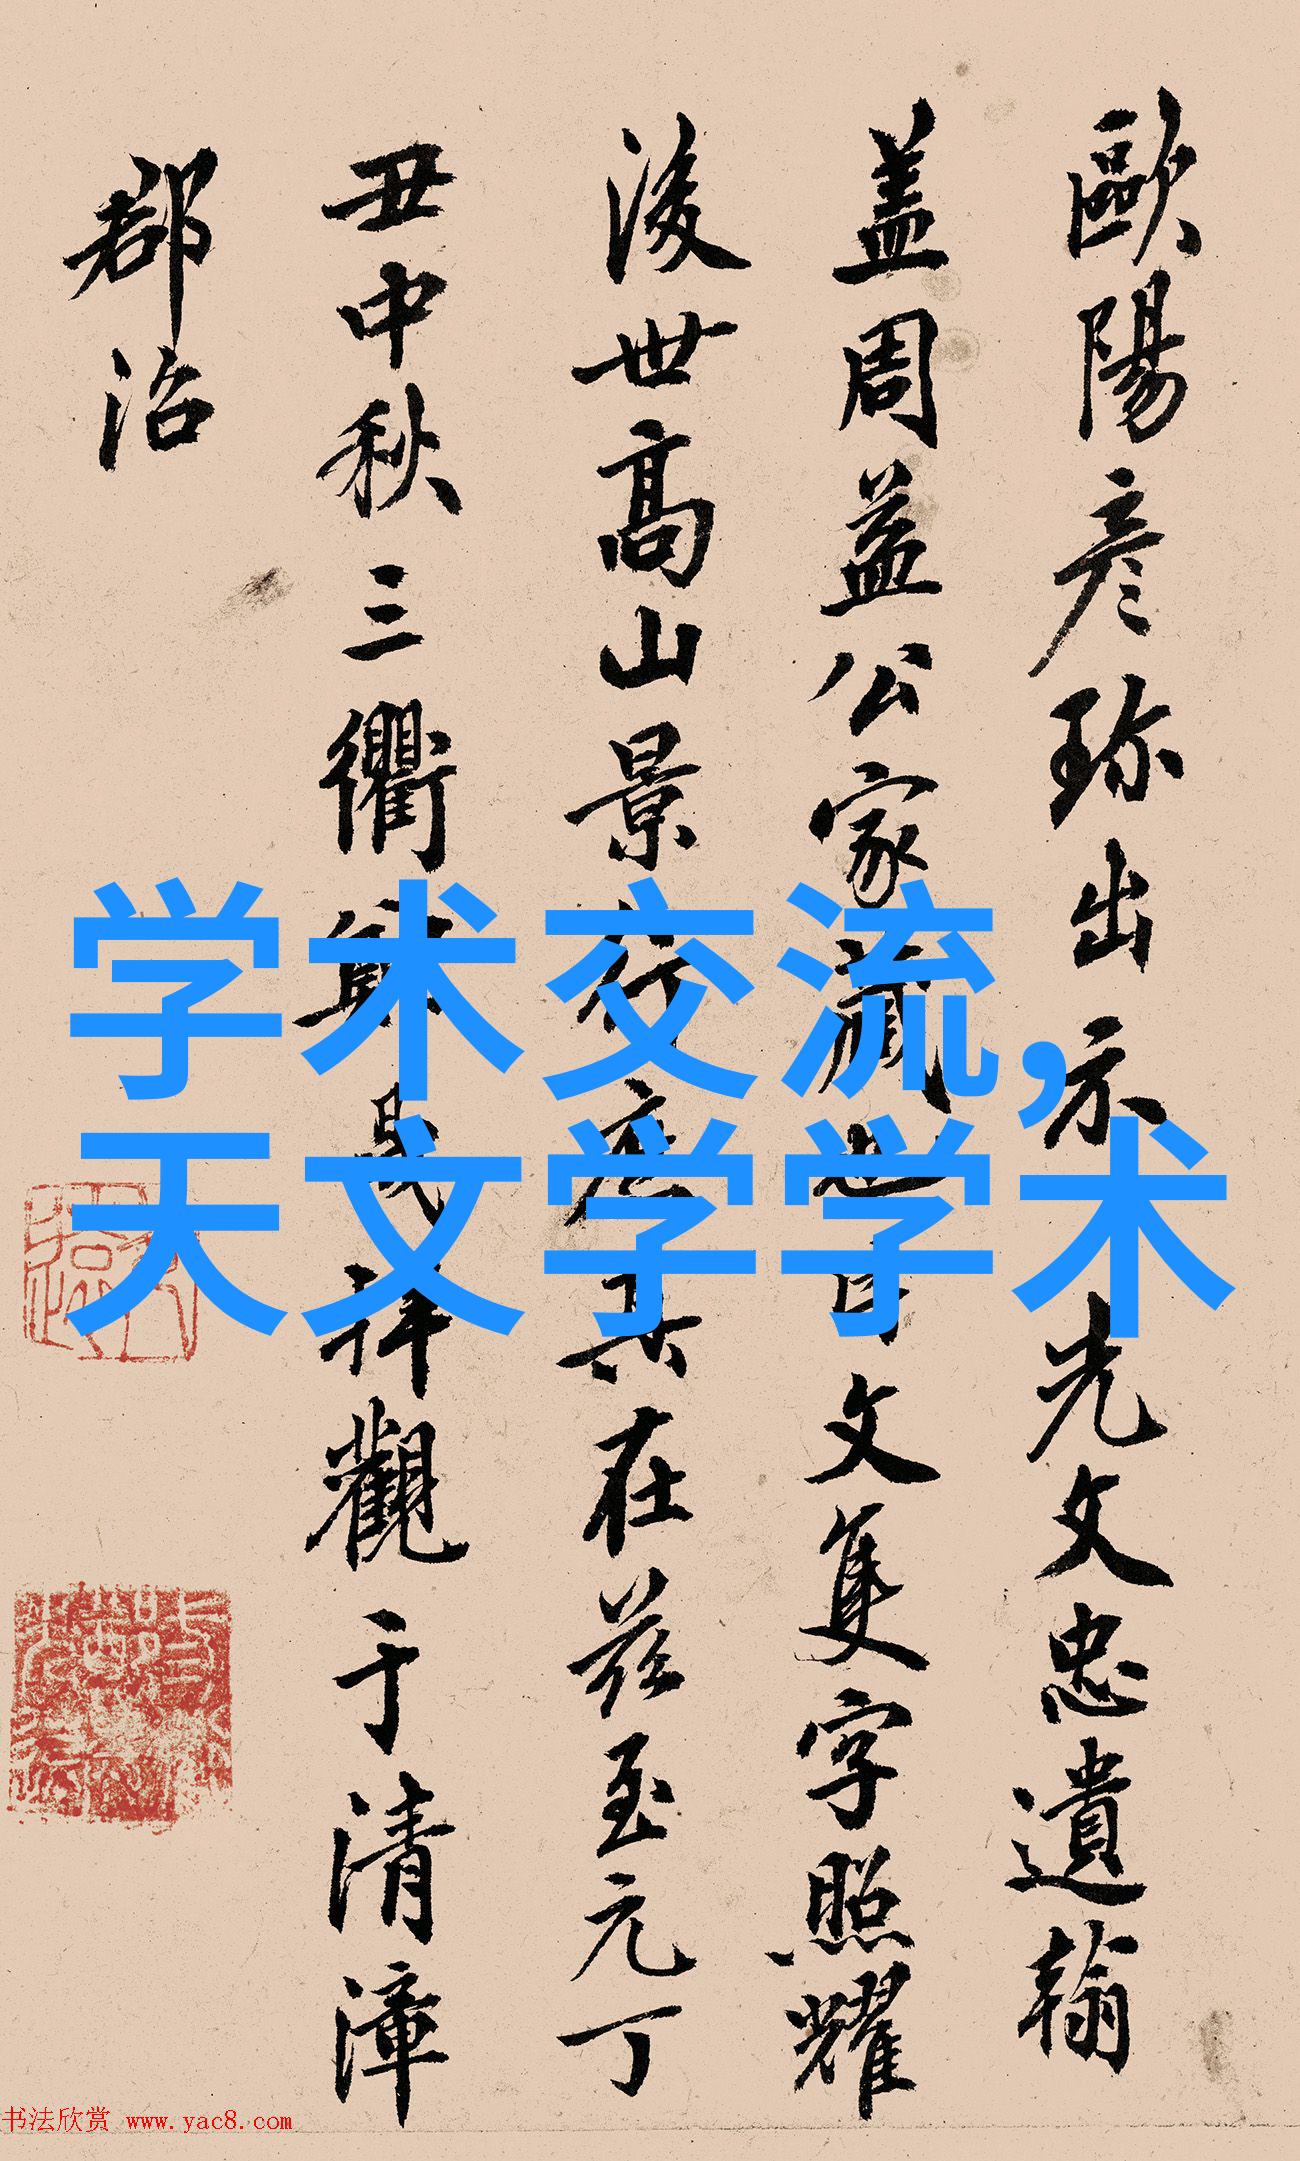 歐陽彦珍出示先文忠遺翰
盖周益公家藏也片文隻字照耀
後世高山景行其在兹至元丁
丑中秋三衢拜觀于清漳
郡治
学术交流,
天文学学术
书法欣赏 www.yac8.com